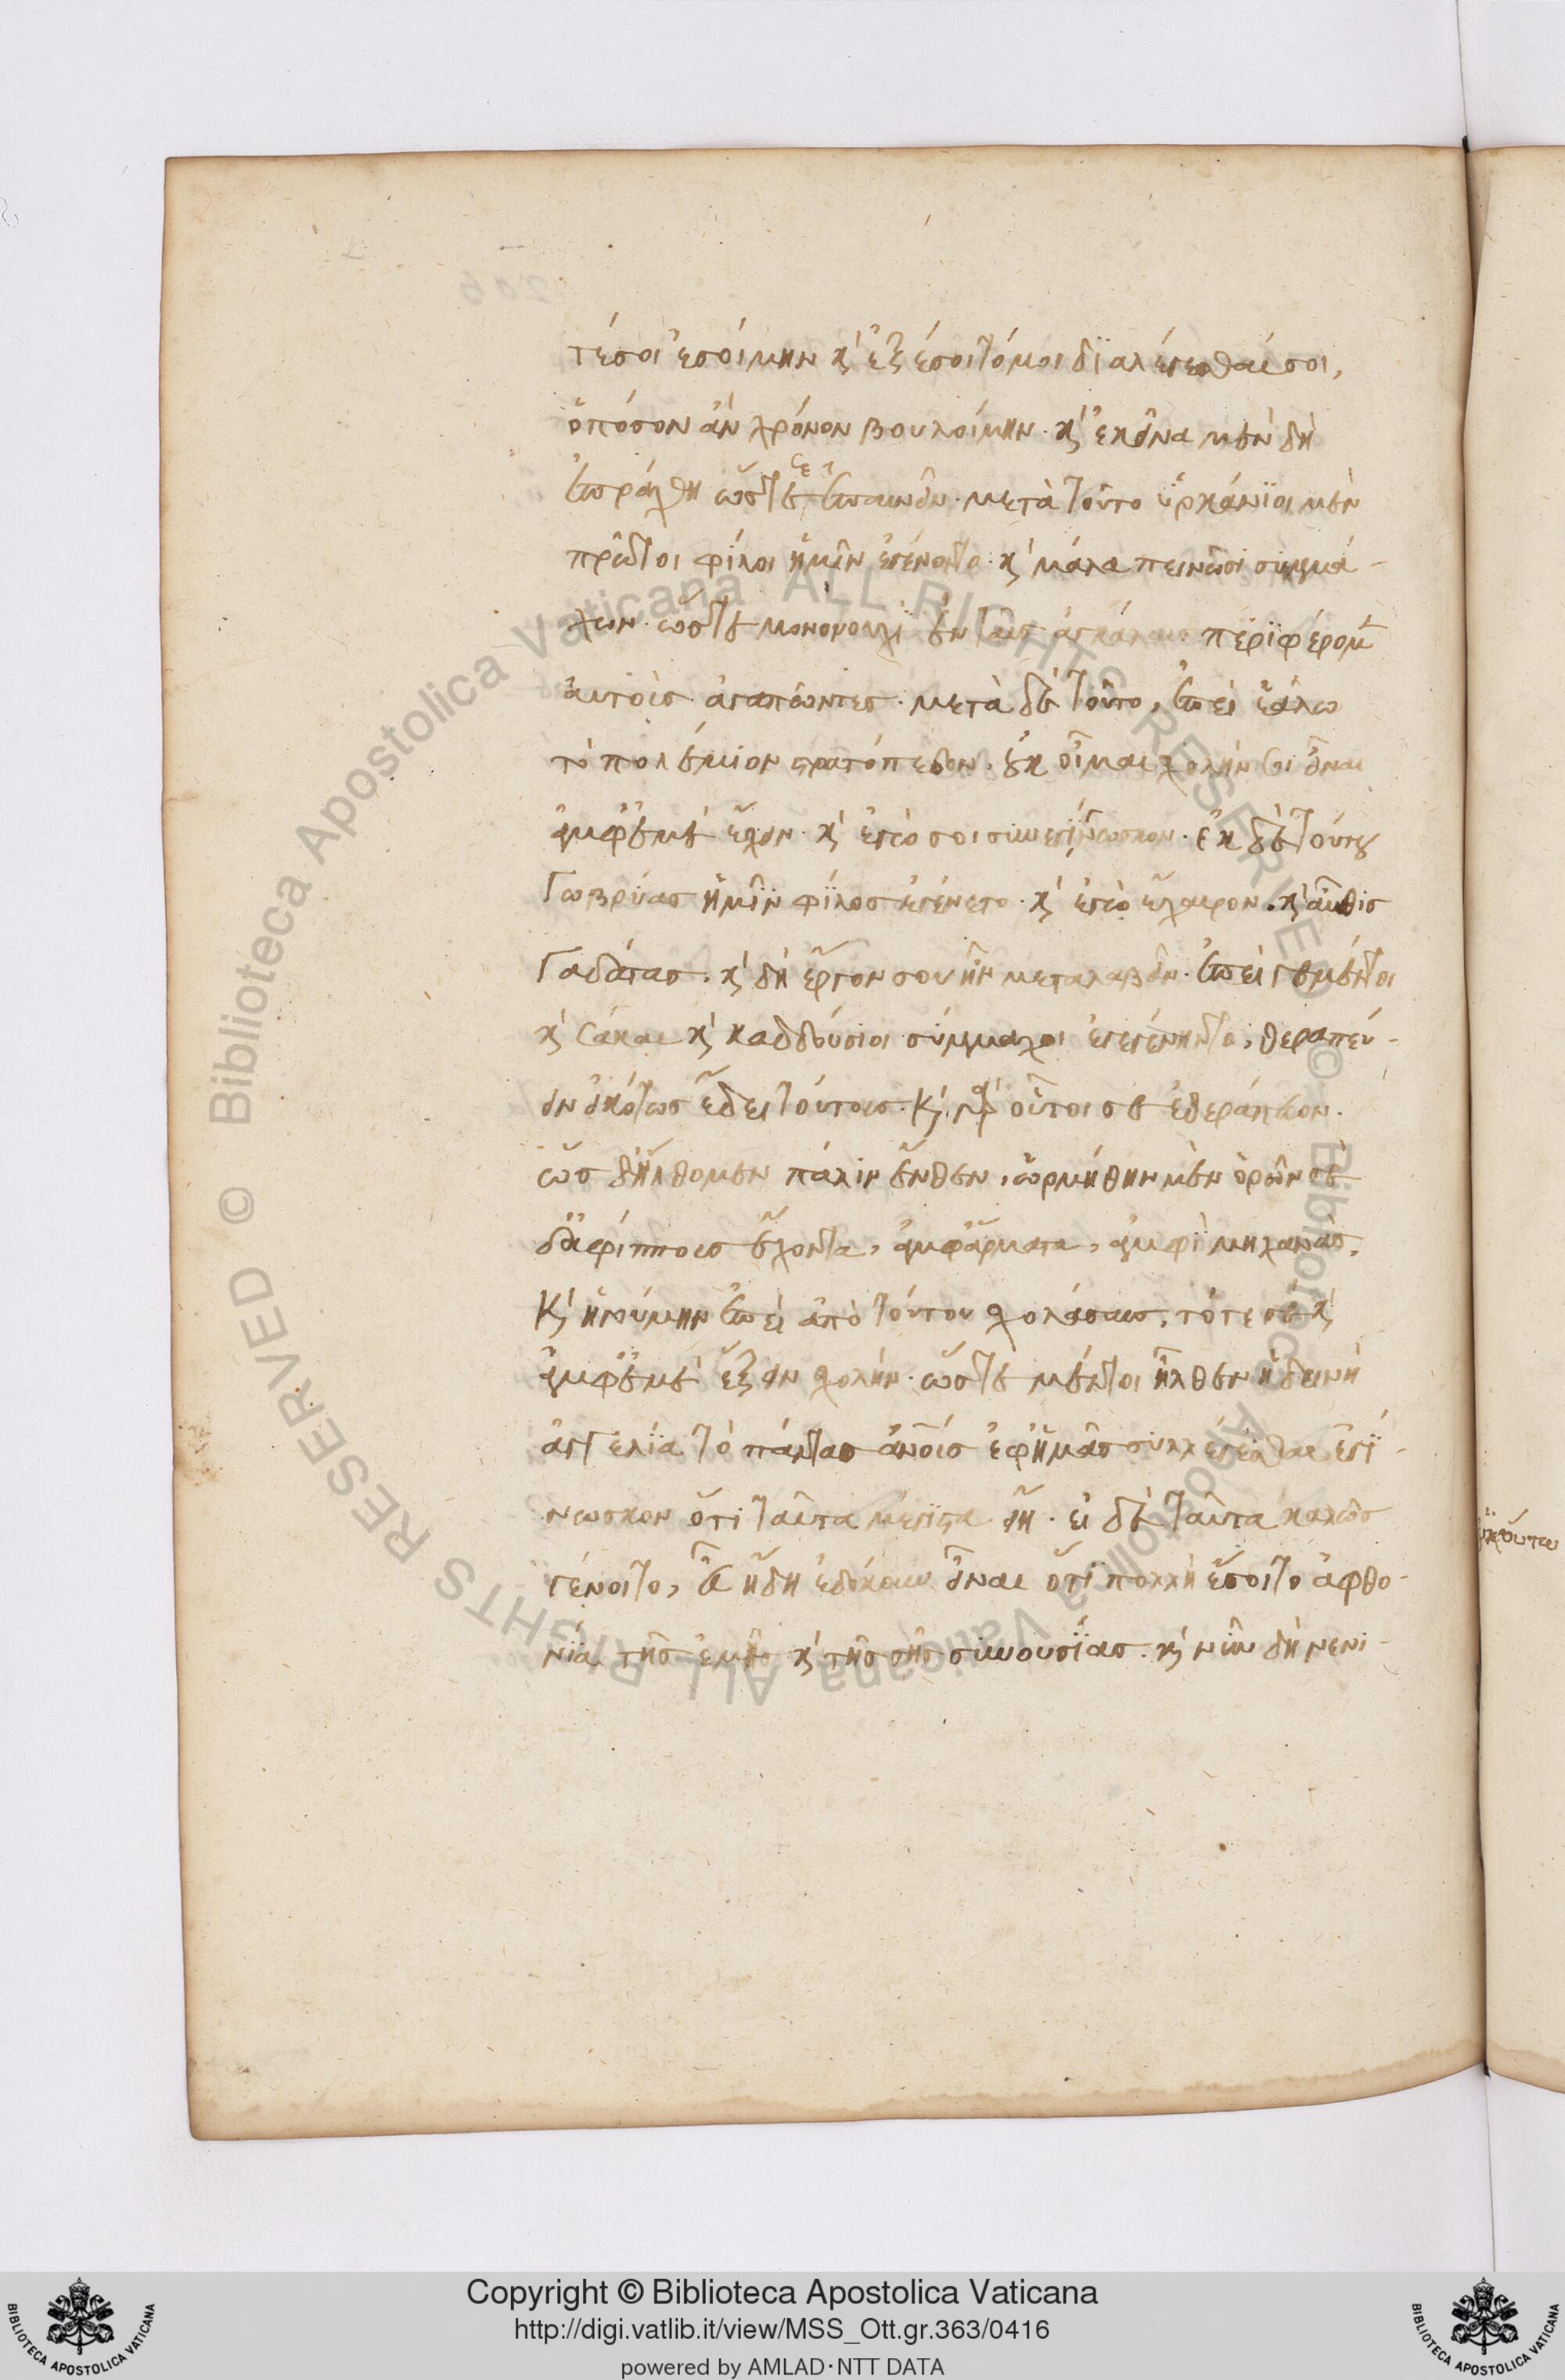 τέ σοι ἐσοίμην κὶ ἐξέσοιτό μοι διαλέγεσθαί σοι,
ὁπόσον ἂν χρόνον βουλοίμην. κὶ ἐκεῖνα μὲν δὴ
ἐπράχθη ὥστε σὲ ἐπαινεῖν. μετὰ τοῦτο ὑρκάνιοι μὲν
πρῶτοι φίλοι ἡμῖν ἐγένοντο. κὶ μάλα πεινῶσι συμμά-
χων. ὥστε μονονουχὶ ἐν ταῖς ἀγκάλαις περιφέρομ
αὐτοὺς ἀγαπῶντες. μετὰ δὲ τοῦτο, ἐπεὶ ἑάλω
τὸ πολέμιον στρατόπεδον, οὐκ οἶμαι σχολήν σοι εἶναι
ἀμφ' ἐμὲ ἔχειν. κὶ ἐγώ σοι συνεγίγνωσκον. ἐκ δὲ τούτου
Γωβρύας ἡμῖν φίλος ἐγένετο. κὶ ἐγὼ ἔχαιρον. κὶ αὖθις
Γαδάτας. κὶ δὴ ἔργον σου ἦν μεταλαβεῖν. ἐπεί γε μέντοι
κὶ Σάκαι κὶ καδδούσιοι σύμμαχοι ἐγεγένηντο, θεραπεύ-
ειν εἰκότως ἔδει τούτους. κὶ γὰρ οὗτοι σὲ ἐθεράπευον.
ὡς δ' ἤλθομεν πάλιν ἔνθεν, ὡρμήθην μὲν ὁρῶν σὲ
δ' ἀμφ' ἵπποις ἔχοντα, ἀμφ' ἅρματα, ἀμφὶ μηχανάς.
κὶ ἡγούμην ἐπεὶ ἀπὸ τούτου σχολάσαις, τότε σε κὶ
ἀμφ' ἐμὲ ἕξειν σχολήν. ὥστε μέντοι ἦλθεν ἡ δεινὴ
ἀγγελία τὸ πάντας ἀνοὺς ἐφ' ἡμᾶς συλλέγεσθαι ἐγί-
νωσκον ὅτι ταῦτα μέγιστα εἴη. εἰ δὲ ταῦτα καλῶς
γένοιτο, εὖ ἤδη ἐδόκουν εἶναι ὅτι πολλὴ ἔσοιτο ἀφθο-
νία τῆς ἐμῆς κὶ τῆς σῆς συνουσίας. κὶ νῦν δὴ νενι-
Copyright © Biblioteca Apostolica Vaticana
http://digi.vatlib.it/view/MSS_Ott.gr.363/0416
powered by AMLAD·NTT DATA